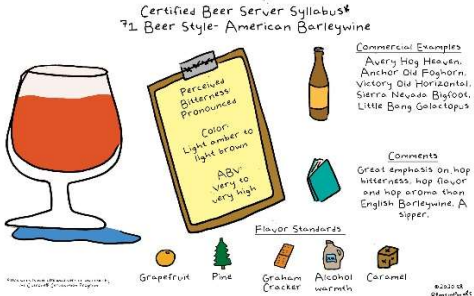 Certified Beer Server Syllabus*
71 Beer Style- American Barleywine
Perceived
Bitterness:
Pronounced
Color:
Light amber to
light brown
ABV:
very to
very high
Commercial Examples
Avery Hog Heaven,
Anchor Old Foghorn,
Victory Old Horizontal,
Sierra Nevada Bigfoot,
Little Bang Galactopus
Comments
Great emphasis on hop
bitterness, hop flavor
and hop aroma than
English Barleywine. A
sipper.
Flavor Standards
Grapefruit
Pine
Graham
Cracker
Alcohol
warmth
Caramel
©2020